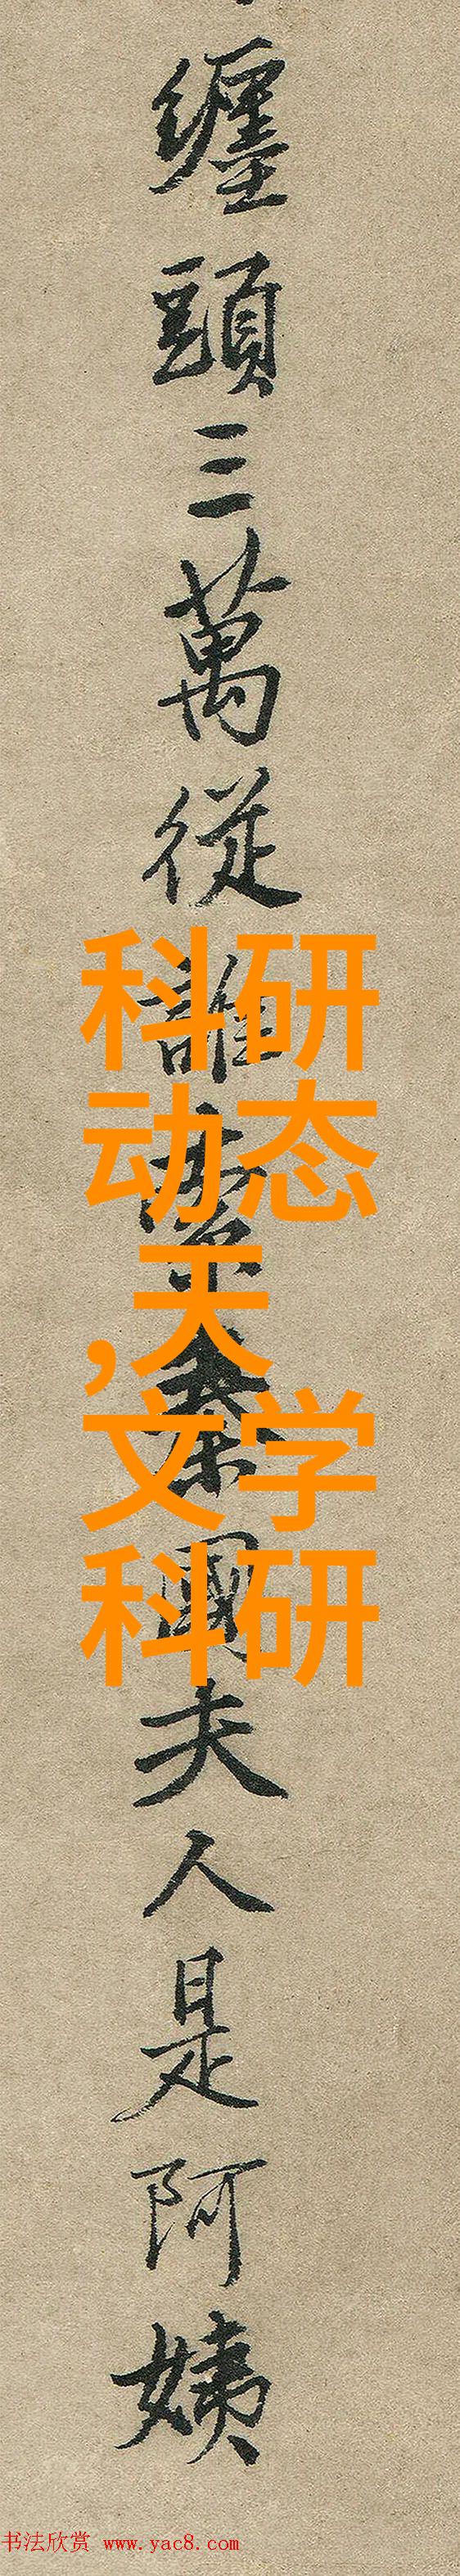 纏頭三萬從誰索秦國夫人是阿姨
科研
动态
,天
文学
科研
书法欣赏 www.yac8.com